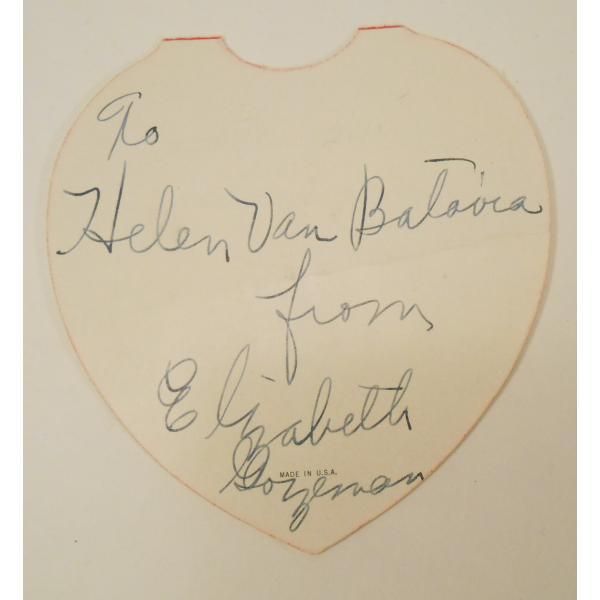 To
Helen Van Batavia
from
Elizabeth
MADE IN U.S.A.
Gozeman